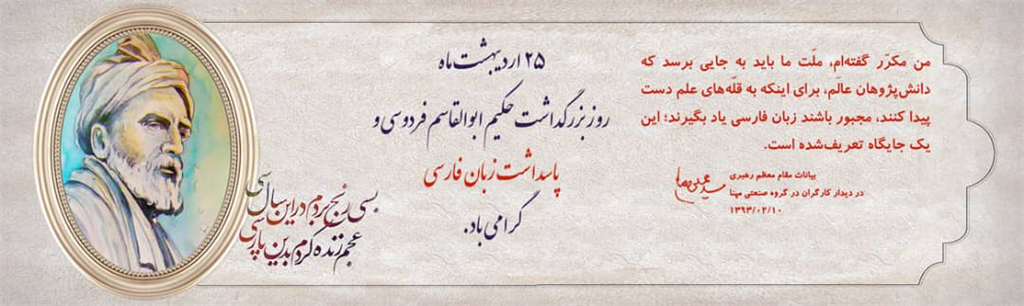 من مکرّر گفته‌ام، ملّت ما باید به جایی برسد که
دانش‌پژوهان عالَم، برای اینکه به قلّه‌های علم دست
پیدا کنند، مجبور باشند زبان فارسی یاد بگیرند؛ این
یک جایگاه تعریف‌شده است.
بیانات مقام معظم رهبری
در دیدار کارگران در گروه صنعتی مپنا
۱۳۹۳/۰۲/۱۰
۲۵ اردیبهشت ماه
روز بزرگداشت حکیم ابوالقاسم فردوسی و
پاسداشت زبان فارسی
گرامی باد.
بسی رنج بردم در این سال سی
عجم زنده کردم بدین پارسی